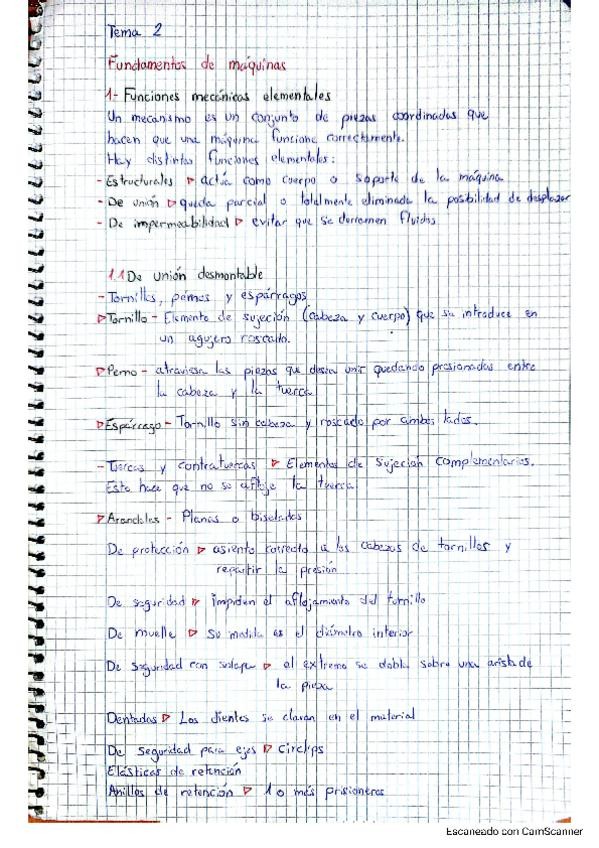 Tema 2
Fundamentos de máquinas
1- Funciones mecánicas elementales
Un mecanismo es un conjunto de piezas coordinadas que
hacen que una máquina funcione correctamente.
Hay distintas funciones elementales:
- Estructurales ▷ actúa como cuerpo o soporte de la máquina
- De unión ▷ queda parcial o totalmente eliminada la posibilidad de desplazar
- De impermeabilidad ▷ evitar que se derramen fluidos
1.1 De unión desmontable
- Tornillos, pernos y espárragos
▷ Tornillo - Elemento de sujeción (cabeza y cuerpo) que se introduce en
un agujero roscado.
▷ Perno - atraviesa las piezas que desea unir quedando presionadas entre
la cabeza y la tuerca
▷ Espárrago - Tornillo sin cabeza y roscado por ambos lados.
- Tuercas y contratuercas ▷ Elementos de sujeción complementarios.
Esto hace que no se afloje la tuerca
▷ Arandelas - Planas o biseladas
De protección ▷ asiento correcto a las cabezas de tornillos y
repartir la presión
De seguridad ▷ impiden el aflojamiento del tornillo
De muelle ▷ Su medida es el diámetro interior
De seguridad con solapa ▷ el extremo se dobla sobre una arista de
la pieza
Dentadas ▷ Los dientes se clavan en el material
De seguridad para ejes ▷ Circlips
Elásticas de retención
Anillos de retención ▷ 1 o más prisioneros
Escaneado con CamScanner